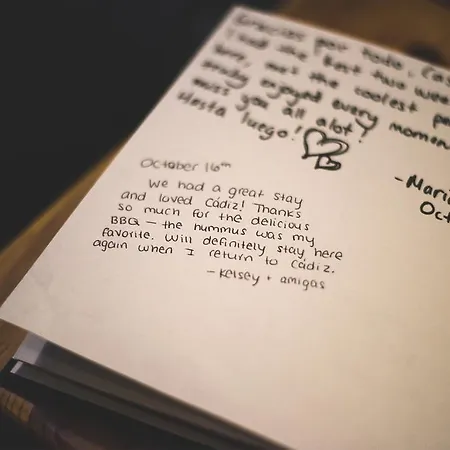 Gracias por todo, Cas
I had the best two wee
here, met the coolest pe
enjoyed every momen
miss you all alot!
Hasta luego!
-Mari
Oct
October 16th
We had a great stay
and loved Cádiz! Thanks
so much for the delicious
BBQ – the hummus was my
favorite. Will definitely stay here
again when I return to Cádiz.
- Kelsey + amigas